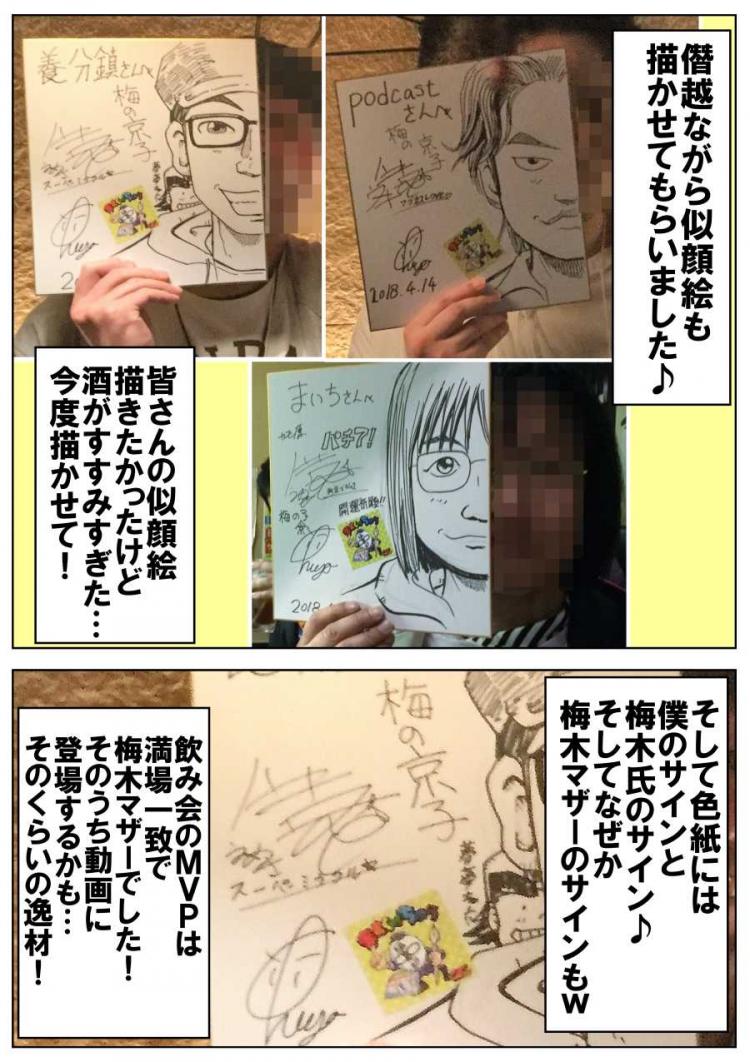 僭越ながら似顔絵も
描かせてもらいました♪
養分鎮さんへ
梅の京子
スーパーミラクル☆
podcast
さんへ
梅の京子
2018.4.14
皆さんの似顔絵
描きたかったけど
酒がすすみすぎた…
今度描かせて！
まいちさんへ
パチ7!
開運祈願!!
梅の京子
2018.
そして色紙には
僕のサインと
梅木氏のサイン♪
そしてなぜか
梅木マザーのサインもｗ
梅の京子
スーパーミラクル☆
飲み会のＭＶＰは
満場一致で
梅木マザーでした！
そのうち動画に
登場するかも…
そのくらいの逸材！